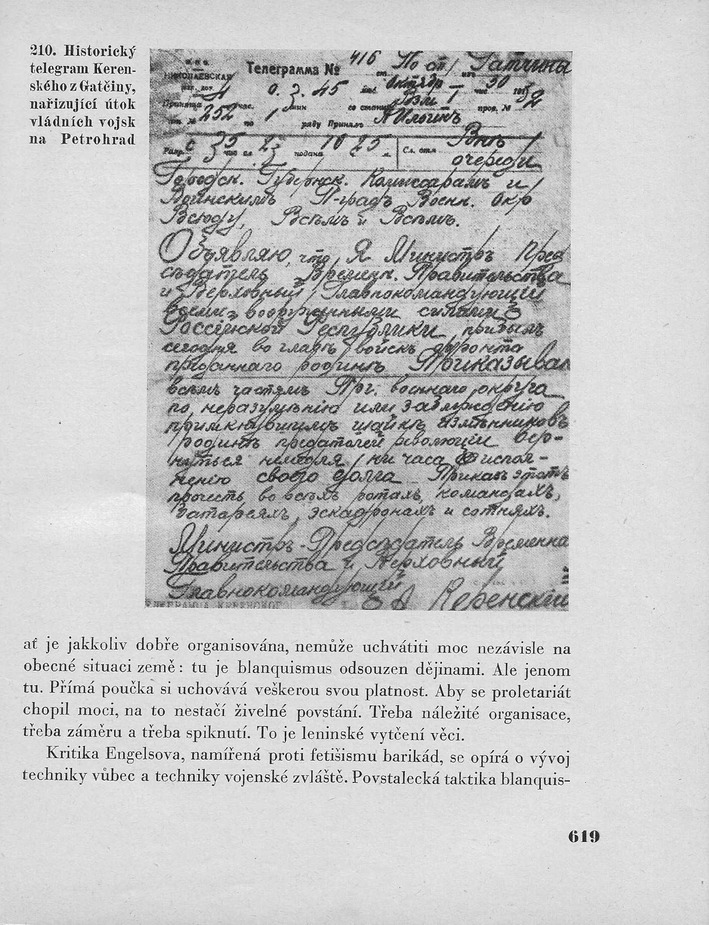 210. Historický
telegram Keren-
ského z Gatčiny,
nařizující útok
vládních vojsk
na Petrohrad
416 По ст. Гатчины
НИКОЛАЕВСКАЯ Телеграмма №
Октябр 30
Принята
252 по 1 ряду Принялъ
подана Сл. отм. Внѣ
очереди
Городск. Губернск. Комиссарамъ и
Воинскимъ П-градъ Воен. Окр
Всюду, Всѣмъ и Всѣмъ.
Объявляю, что Я Министръ Пред
сѣдатель Времен. Правительства
и Верховный Главнокомандующій
всеми вооруженными силами
Россійской Республики прибылъ
сегодня во главѣ войскъ фронта
преданнаго родинѣ Приказываю
всѣмъ частямъ Пгр. военнаго округа
по неразумѣнію или заблужденію
примкнувшимъ шайкѣ измѣнниковъ
родинѣ предателей революціи вер-
нуться не медля ни часа къ испол-
ненію своего долга Приказъ этотъ
прочесть во всѣхъ ротахъ, командахъ,
батареяхъ, эскадронахъ и сотняхъ.
Министръ-Предсѣдатель Временна
Правительства и Верховный
Главнокомандующій
А Керенскій
ať je jakkoliv dobře organisována, nemůže uchvátiti moc nezávisle na
obecné situaci země: tu je blanquismus odsouzen dějinami. Ale jenom
tu. Přímá poučka si uchovává veškerou svou platnost. Aby se proletariát
chopil moci, na to nestačí živelné povstání. Třeba náležité organisace,
třeba záměru a třeba spiknutí. To je leninské vytčení věci.
Kritika Engelsova, namířená proti fetišismu barikád, se opírá o vývoj
techniky vůbec a techniky vojenské zvláště. Povstalecká taktika blanquis-
619